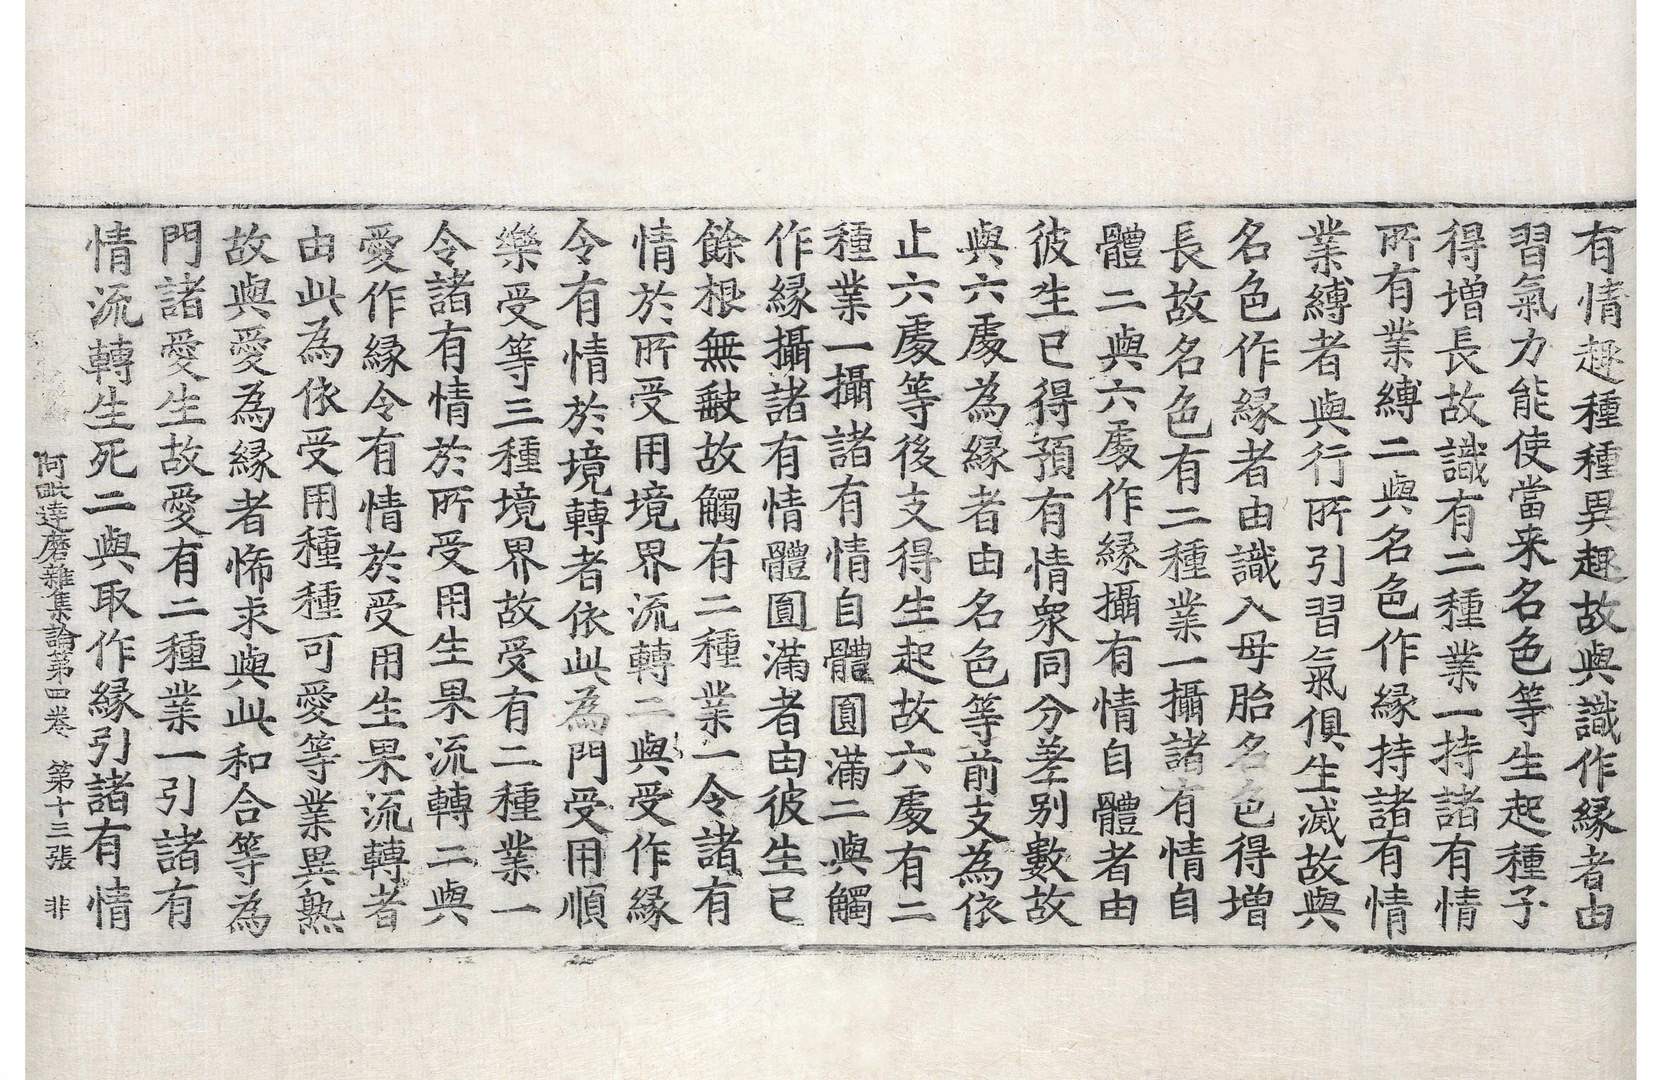 有情趣種種異趣故與識作縁者由
習氣力能使當来名色等生起種子
得增長故識有二種業一持諸有情
所有業縛二與名色作縁持諸有情
業縛者與行所引習氣俱生滅故與
名色作縁者由識入母胎名色得增
長故名色有二種業一攝諸有情自
體二與六處作縁攝有情自體者由
彼生已得預有情衆同分差别數故
與六處為縁者由名色等前支為依
止六處等後支得生起故六處有二
種業一攝諸有情自體圓滿二與觸
作縁攝諸有情體圓滿者由彼生已
餘根無䵟故觸有二種業一令諸有
情於所受用境界流轉二與受作縁
令有情於境轉者依此為門受用順
樂受等三種境界故受有二種業一
令諸有情於所受用生果流轉二與
愛作縁令有情於受用生果流轉者
由此為依受用種種可愛等業異熟
故與愛為縁者悕求與此和合等為
門諸愛生故愛有二種業一引諸有
情流轉生死二與取作縁引諸有情
阿毗達磨雜集論第四卷 第十三張 非